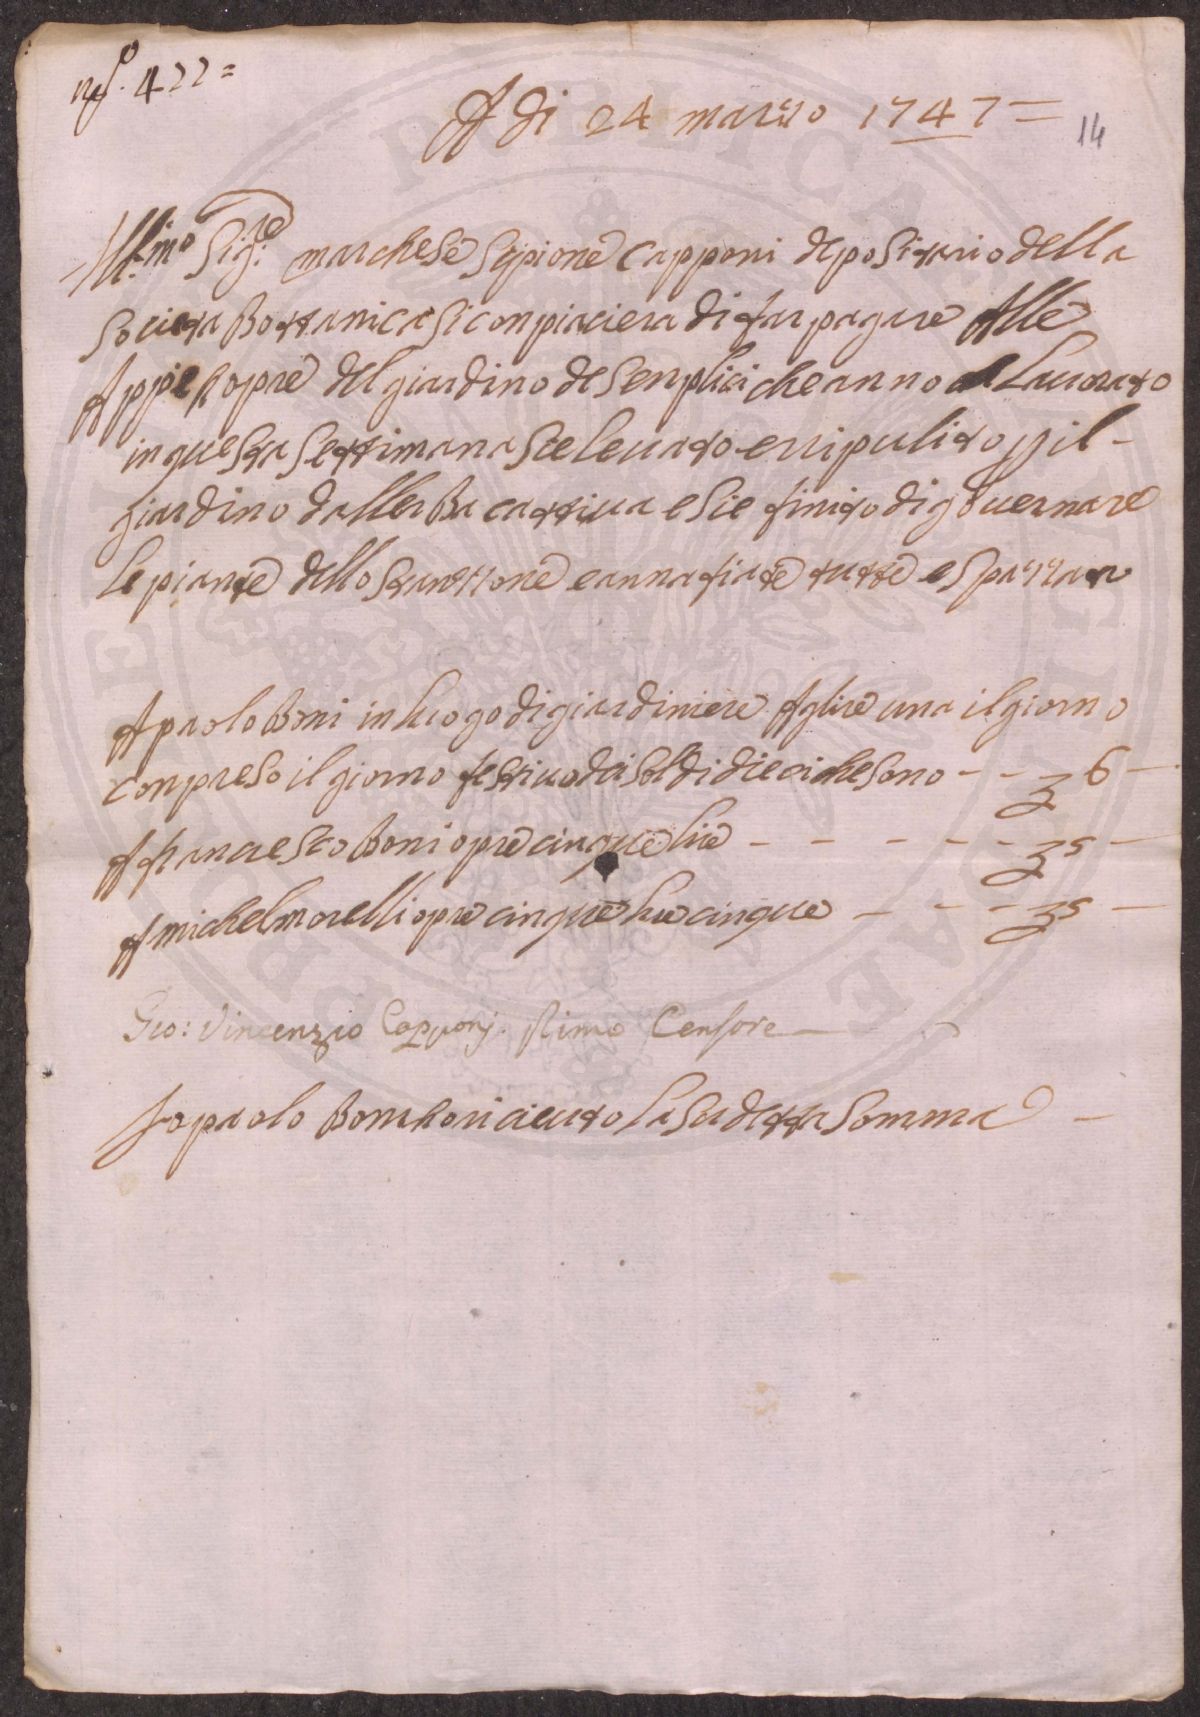 No. 422=
A di 24 marzo 1747=
14
Ill.mo Sig.re marchese Sipione Capponi depositario della
Societa Bottanica si conpiaciera di far pagare Alle
Appie opre del giardino de Senplici che anno Lauorato
in questa settimana Sie leuato e rripulito p il
giardino dallerba cattiua e Sie finito di gouernare
le piante dello Stanzzone e annafiate tutte e spazzato
A paolo Boni in luogo di giardiniere A lire una il giorno
conpreso il giorno festiuo dei soldi dieci che sono - - 6 -
A francesco Boni opre cinque lire - - - - - - 5 -
A michel morelli opre cinque lire cinque - - - - 5 -
Gio: Vincenzio Capponj Primo Censore
Io paolo Boni ho riceuto la sudetta somma -